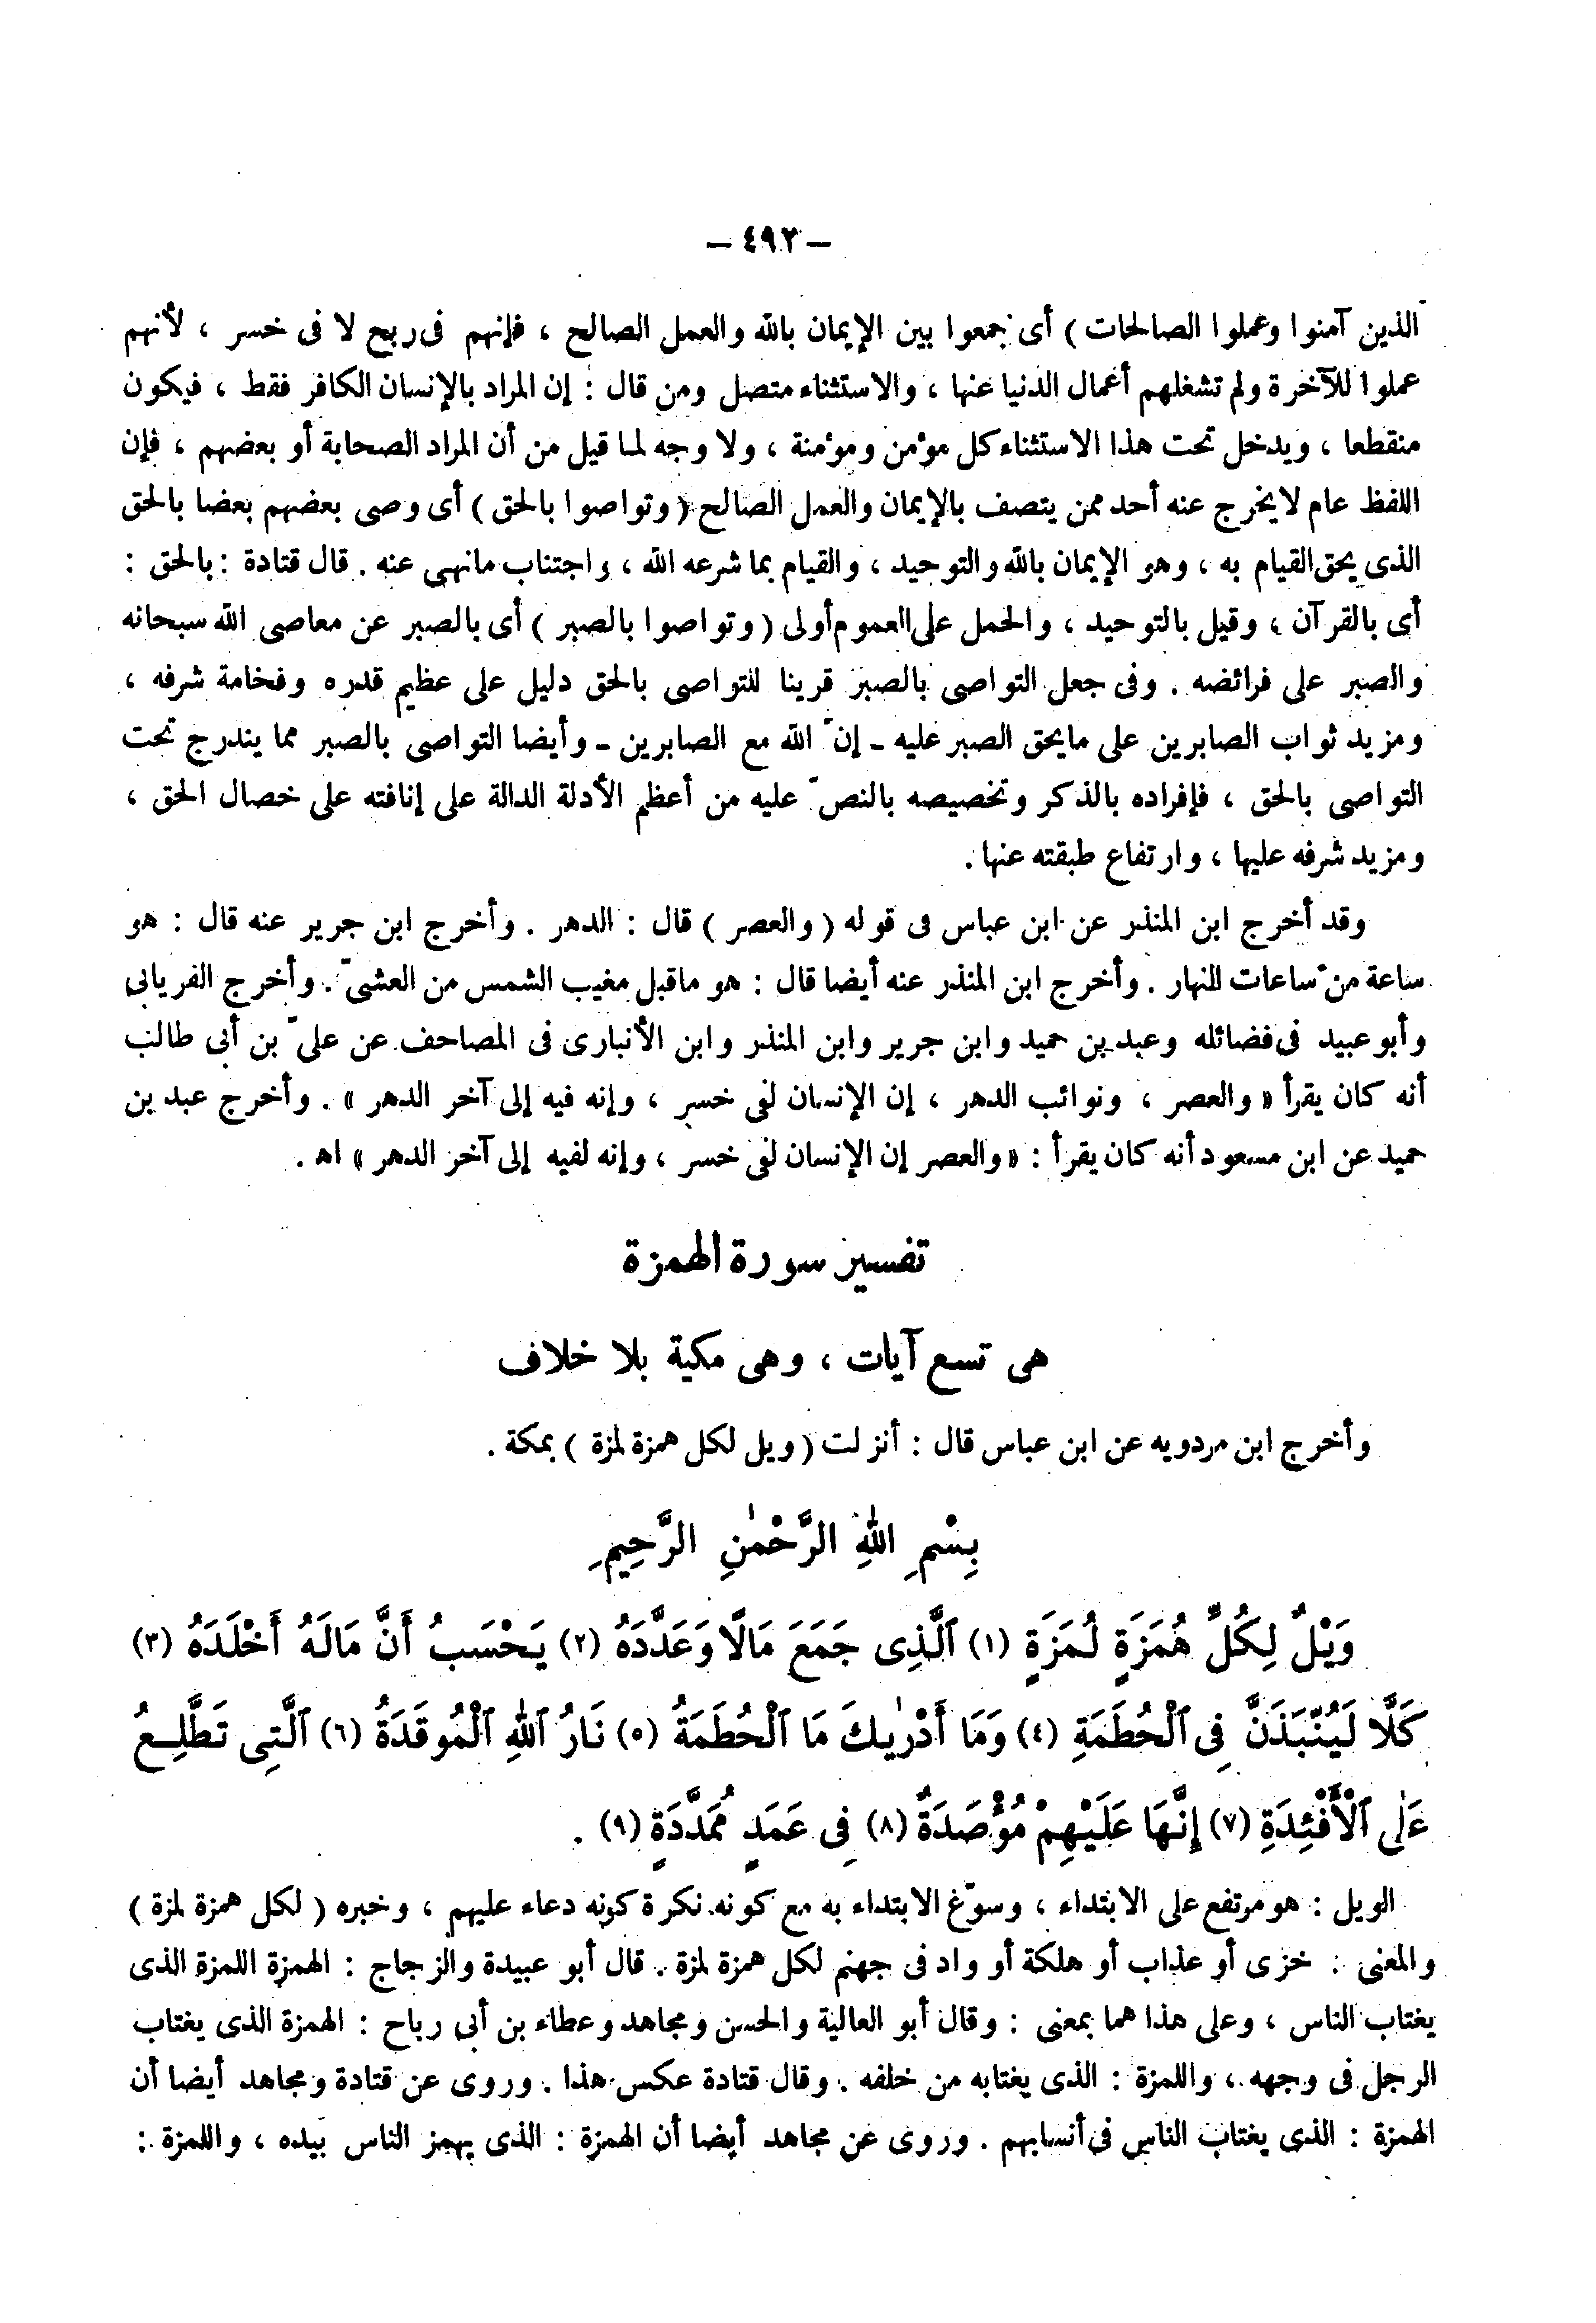 — ٤٩٢ —
الذين آمنوا وعملوا الصالحات ) أى جمعوا بين الإيمان بالله والعمل الصالح ، فإنهم فى ربح لا فى خسر ، لأنهم
عملوا للآخرة ولم تشغلهم أعمال الدنيا عنها ، والاستثناء متصل ومن قال : إن المراد بالإنسان الكافر فقط ، فيكون
منقطعا ، ويدخل تحت هذا الاستثناء كل مؤمن ومؤمنة ، ولا وجه لما قيل من أن المراد الصحابة أو بعضهم ، فإن
اللفظ عام لا يخرج عنه أحد ممن يتصف بالإيمان والعمل الصالح ( وتواصوا بالحق ) أى وصى بعضهم بعضا بالحق
الذى يحق القيام به ، وهو الإيمان بالله والتوحيد ، والقيام بما شرعه الله ، واجتناب مانهى عنه . قال قتادة : بالحق :
أى بالقرآن ، وقيل بالتوحيد ، والحمل على العموم أولى ( وتواصوا بالصبر ) أى بالصبر عن معاصى الله سبحانه
والصبر على فرائضه . وفى جعل التواصى بالصبر قرينا للتواصى بالحق دليل على عظيم قدره وفخامة شرفه ،
ومزيد ثواب الصابرين على مايحق الصبر عليه ـ إنّ الله مع الصابرين ـ وأيضا التواصى بالصبر مما يندرج تحت
التواصى بالحق ، فإفراده بالذكر وتخصيصه بالنصّ عليه من أعظم الأدلة الدالة على إنافته على خصال الحق ،
ومزيد شرفه عليها ، وارتفاع طبقته عنها .
وقد أخرج ابن المنذر عن ابن عباس فى قوله ( والعصر ) قال : الدهر . وأخرج ابن جرير عنه قال : هو
ساعة من ساعات النهار . وأخرج ابن المنذر عنه أيضا قال : هو ماقبل مغيب الشمس من العشىّ . وأخرج الفريابى
وأبو عبيد فى فضائله وعبد بن حميد وابن جرير وابن المنذر وابن الأنبارى فى المصاحف عن علىّ بن أبى طالب
أنه كان يقرأ « والعصر ، ونوائب الدهر ، إن الإنسان لفى خسر ، وإنه فيه إلى آخر الدهر » . وأخرج عبد بن
حميد عن ابن مسعود أنه كان يقرأ : « والعصر إن الإنسان لفى خسر ، وإنه لفيه إلى آخر الدهر » اه .
تفسير سورة الهمزة
هى تسع آيات ، وهى مكية بلا خلاف
وأخرج ابن مردويه عن ابن عباس قال : أنزلت ( ويل لكل همزة لمزة ) بمكة .
بِسْمِ اللهِ الرَّحْمٰنِ الرَّحِيمِ
وَيْلٌ لِكُلِّ هُمَزَةٍ لُمَزَةٍ (١) ٱلَّذِى جَمَعَ مَالًا وَعَدَّدَهُ (٢) يَحْسَبُ أَنَّ مَالَهُ أَخْلَدَهُ (٣)
كَلَّا لَيُنْبَذَنَّ فِى ٱلْحُطَمَةِ (٤) وَمَا أَدْرٰيكَ مَا ٱلْحُطَمَةُ (٥) نَارُ ٱللهِ ٱلْمُوقَدَةُ (٦) ٱلَّتِى تَطَّلِعُ
عَلٰى ٱلْأَفْئِدَةِ (٧) إِنَّهَا عَلَيْهِمْ مُؤْصَدَةٌ (٨) فِى عَمَدٍ مُمَدَّدَةٍ (٩) .
الويل : هو مرتفع على الابتداء ، وسوّغ الابتداء به مع كونه نكرة كونه دعاء عليهم ، وخبره ( لكل همزة لمزة )
والمعنى : خزى أو عذاب أو هلكة أو واد فى جهنم لكل همزة لمزة . قال أبو عبيدة والزجاج : الهمزة اللمزة الذى
يغتاب الناس ، وعلى هذا هما بمعنى : وقال أبو العالية والحسن ومجاهد وعطاء بن أبى رباح : الهمزة الذى يغتاب
الرجل فى وجهه ، واللمزة : الذى يغتابه من خلفه . وقال قتادة عكس هذا . وروى عن قتادة ومجاهد أيضا أن
الهمزة : الذى يغتاب الناس فى أنسابهم . وروى عن مجاهد أيضا أن الهمزة : الذى يهمز الناس بيده ، واللمزة :